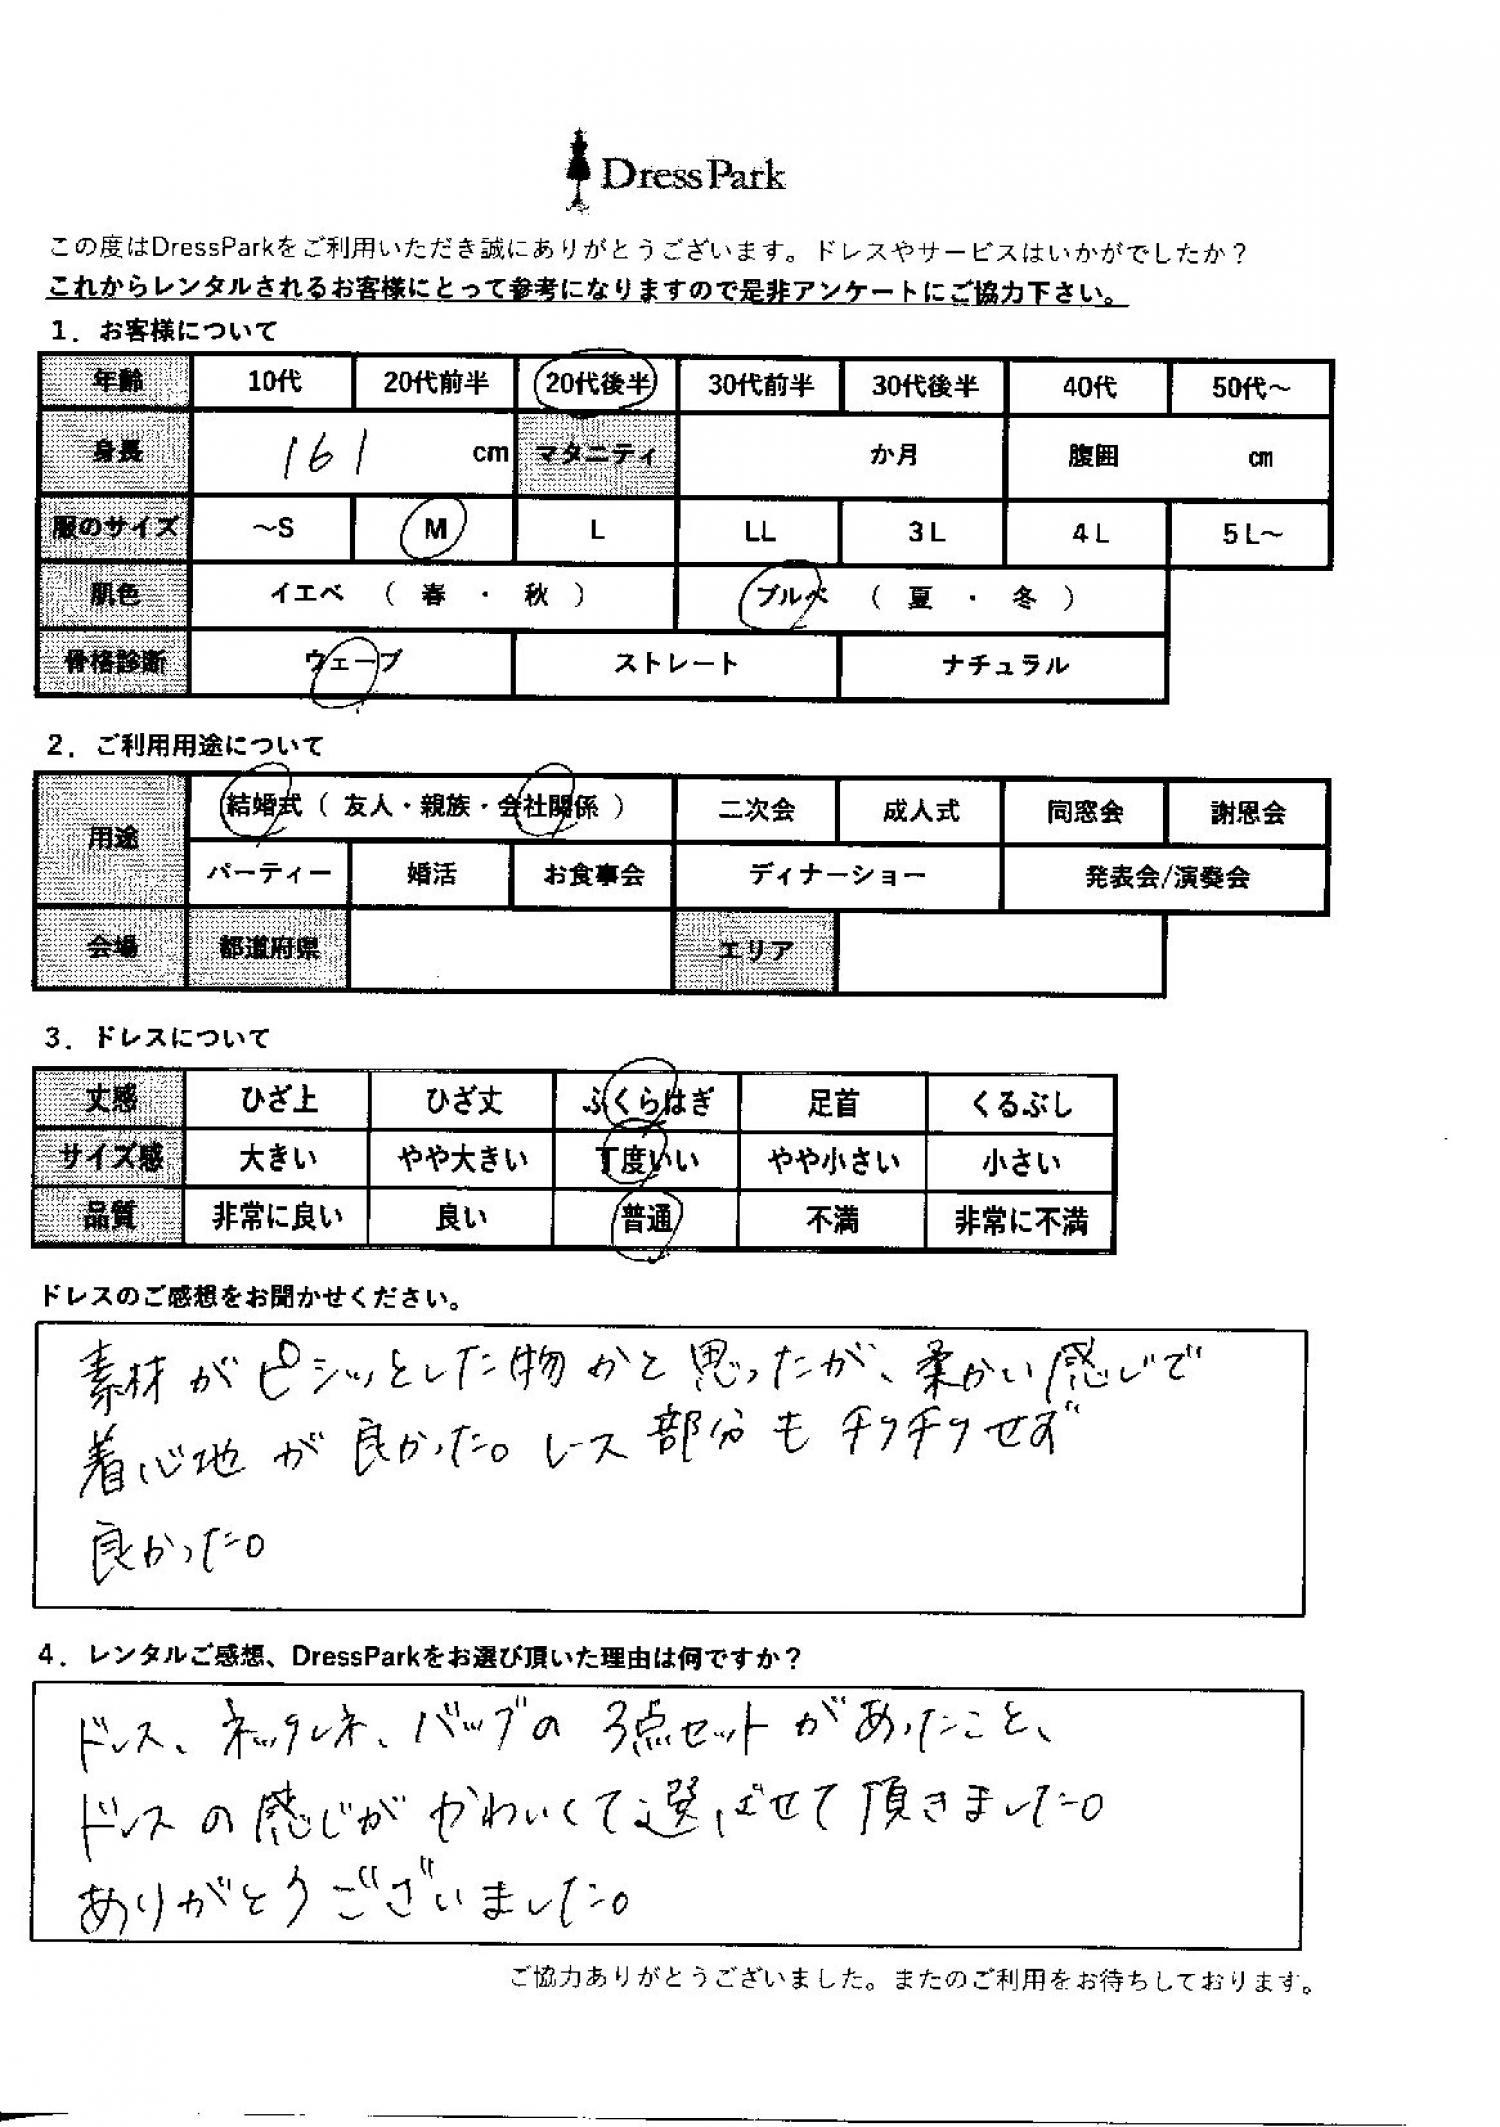 DressPark
この度はDressParkをご利用いただき誠にありがとうございます。ドレスやサービスはいかがでしたか？
これからレンタルされるお客様にとって参考になりますので是非アンケートにご協力下さい。
1．お客様について
年齢 10代 20代前半 20代後半 30代前半 30代後半 40代 50代～
身長 161 cm マタニティ か月 腹囲 cm
服のサイズ ～S M L LL 3L 4L 5L～
肌色 イエベ （ 春 ・ 秋 ） ブルベ （ 夏 ・ 冬 ）
骨格診断 ウェーブ ストレート ナチュラル
2．ご利用用途について
用途 結婚式（ 友人・親族・会社関係 ） 二次会 成人式 同窓会 謝恩会
パーティー 婚活 お食事会 ディナーショー 発表会/演奏会
会場 都道府県 エリア
3．ドレスについて
丈感 ひざ上 ひざ丈 ふくらはぎ 足首 くるぶし
サイズ感 大きい やや大きい 丁度いい やや小さい 小さい
品質 非常に良い 良い 普通 不満 非常に不満
ドレスのご感想をお聞かせください。
素材がピシッとした物かと思ったが、柔かい感じで
着心地が良かった。レース部分もチクチクせず
良かった。
4．レンタルご感想、DressParkをお選び頂いた理由は何ですか？
ドレス、ネックレス、バッグの3点セットがあったこと、
ドレスの感じがかわいくて選ばせて頂きました。
ありがとうございました。
ご協力ありがとうございました。またのご利用をお待ちしております。